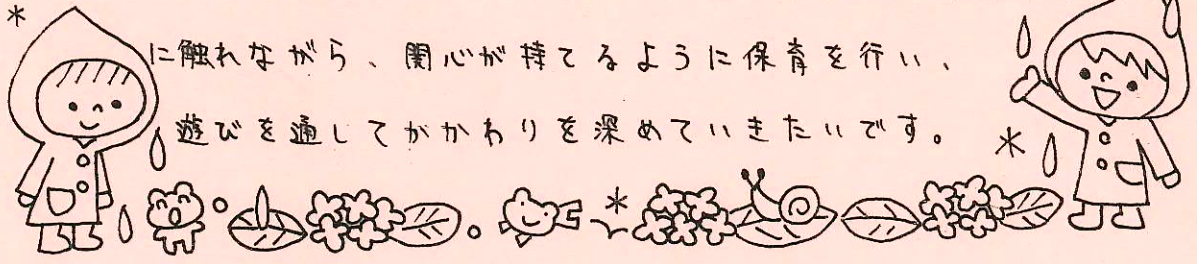 に触れながら、関心が持てるように保育を行い、
遊びを通してがかわりを深めていきたいです。